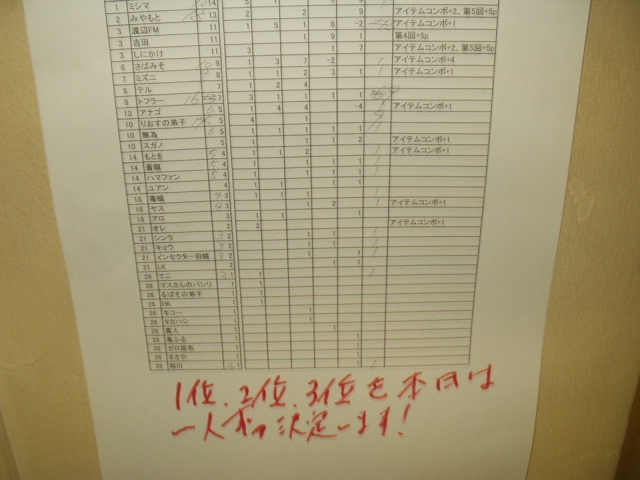 1 ミシマ 14 5 1
2 みやもと 13 2 2 9 アイテムコンボ+2、第5回+5p
3 渡辺FM 11 1 5 1 6 -2 アイテムコンボ+1
3 吉田 11 1 9 1 第4回+5p
3 しにかけ 11 3 1 7 アイテムコンボ+2、第5回+5p
6 さばみそ 9 1 3 7 -2 1 アイテムコンボ+4
7 ミズニ 8 1 1 2 3 1 1 アイテムコンボ+1
8 テル 7 1 2 4
8 トフラー 7 3 1 1 1 1
10 アナゴ 5 1 4 4 -4 1 アイテムコンボ+1
10 りおすの弟子 5 4 1
10 無為 5 1 1 1 1 1
10 スガノ 5 1 1 1 2 アイテムコンボ+1
14 もとを 4 1 1 2 1 アイテムコンボ+1
14 4 1 1 1 1
14 ハマファン 4 1 1 1 1
14 ユアン 4 1 1 1 1
18 毒蛾 3 1 1 1
18 ヤス 3 1 2 1 アイテムコンボ+1
18 アロ 3 1 1 1
21 オレ 2 2 アイテムコンボ+1
21 シンラ 2 1 1
21 キョウ 2 1 1
21 インセクター羽蛾 2 1 1
21 LK 2 1 1
26 てこ 1 1
26 マスさんのパシリ 1 1
26 るぱその弟子 1 1
26 HK 1 1
26 キコー 1 1
26 タカハシ 1 1
26 萬人 1 1
26 亀ふる 1 1
26 ゼロ昆布 1 1
26 まさや 1 1
26 堀川 1 1
1位、2位、3位を本日は
一人ずつ決定します!